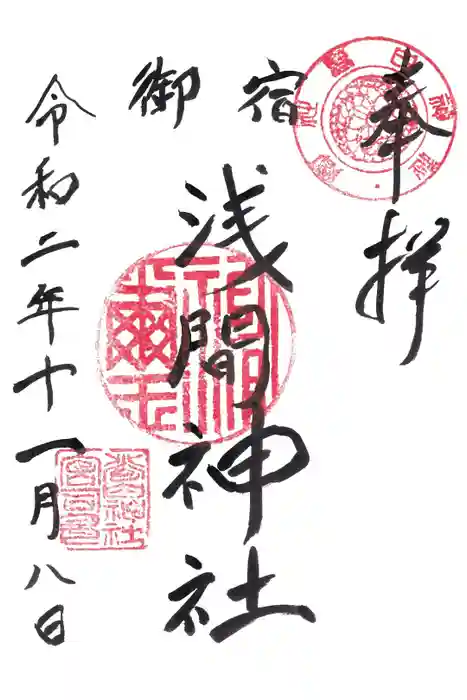 奉拝
宿御
浅間神社
令和二年十一月八日